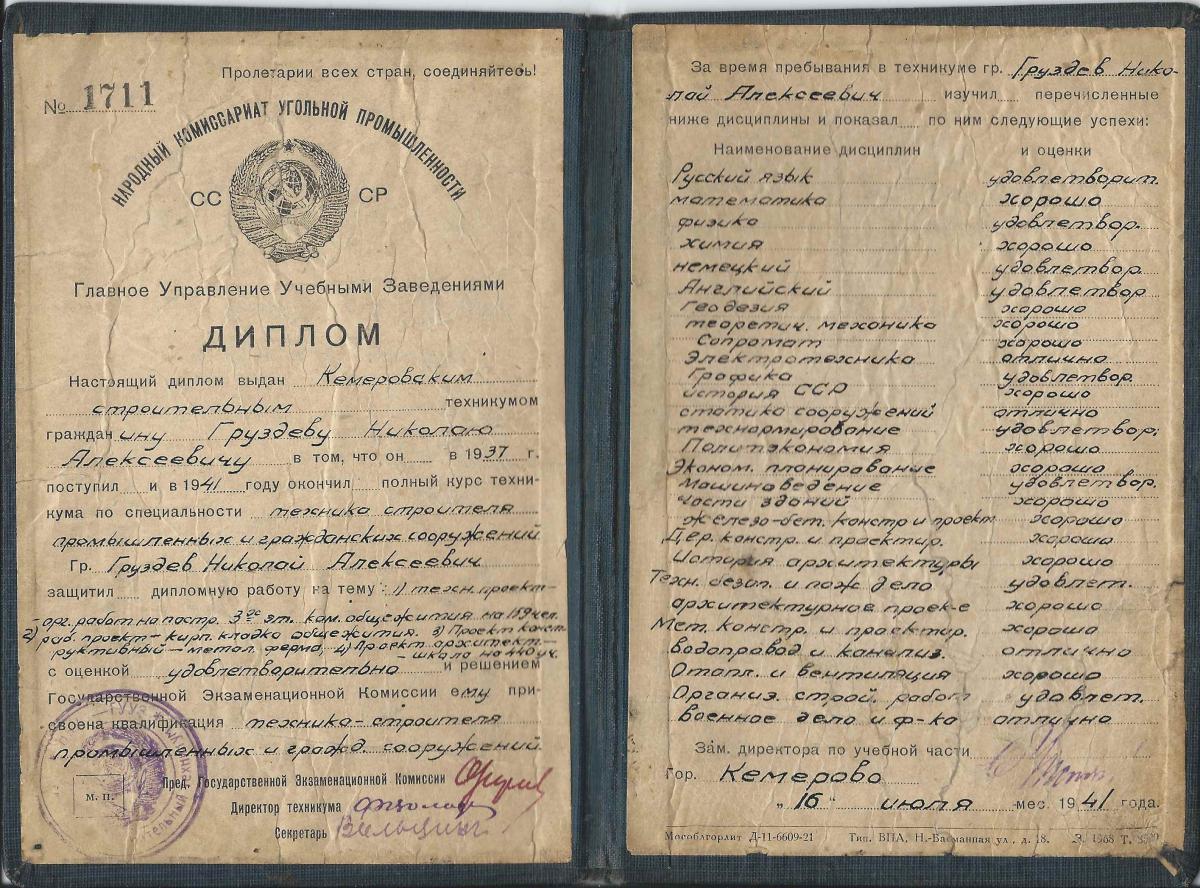 Пролетарии всех стран, соединяйтесь!
№ 1711
НАРОДНЫЙ КОМИССАРИАТ УГОЛЬНОЙ ПРОМЫШЛЕННОСТИ
СС СР
Главное Управление Учебными Заведениями
ДИПЛОМ
Настоящий диплом выдан Кемеровским
строительным техникумом
гражданину Груздеву Николаю
Алексеевичу в том, что он в 1937 г.
поступил и в 1941 году окончил полный курс техни-
кума по специальности техника строителя
промышленных и гражданских сооружений
Гр. Груздев Николай Алексеевич
защитил дипломную работу на тему: 1) техн. проект-
орг. работ на постр. 3ох эт. кам. общежития на 159 чел.
2) раб. проект – кирп. кладка общежития. 3) Проект конст
руктивный – метал. ферма, 4) Проект архитект. –
– школа на 440 уч.
с оценкой удовлетворительно и решением
Государственной Экзаменационной Комиссии ему при-
своена квалификация техника-строителя
промышленных и гражд. сооружений.
Пред. Государственной Экзаменационной Комиссии
М. П.
Директор техникума
Секретарь
За время пребывания в техникуме гр. Груздев Нико-
лай Алексеевич изучил перечисленные
ниже дисциплины и показал по ним следующие успехи:
Наименование дисциплин и оценки
Русский язык удовлетворит.
математика хорошо
физика удовлетвор.
химия хорошо
немецкий удовлетвор
Английский удовлетвор
Геодезия хорошо
теоретич. механика хорошо
Сопромат хорошо
Электротехника отлично
Графика удовлетвор.
история ССР хорошо
статика сооружений отлично
технормирование удовлетвор;
Политэкономия хорошо
Эконом. планирование хорошо
Машиноведение удовлетвор.
части зданий хорошо
Железо-бет. констр и проект хорошо
Дер. констр. и проектир. хорошо
История архитектуры хорошо
Техн. безоп. и пож дело удовлет.
архитектурное проек-е хорошо
Мет. констр. и проектир. хорошо
водопровод и канализ. отлично
Отопл. и вентиляция хорошо
Организ. строй. работ удовлет.
военное дело и ф-ка отлично
Зам. директора по учебной части
Гор. Кемерово
„16“ июля мес. 1941 года.
Мособлгорлит Д-11-6609-21 Тип. ВПА, Н.-Басманная ул., д. 18. З. 1968 Т.